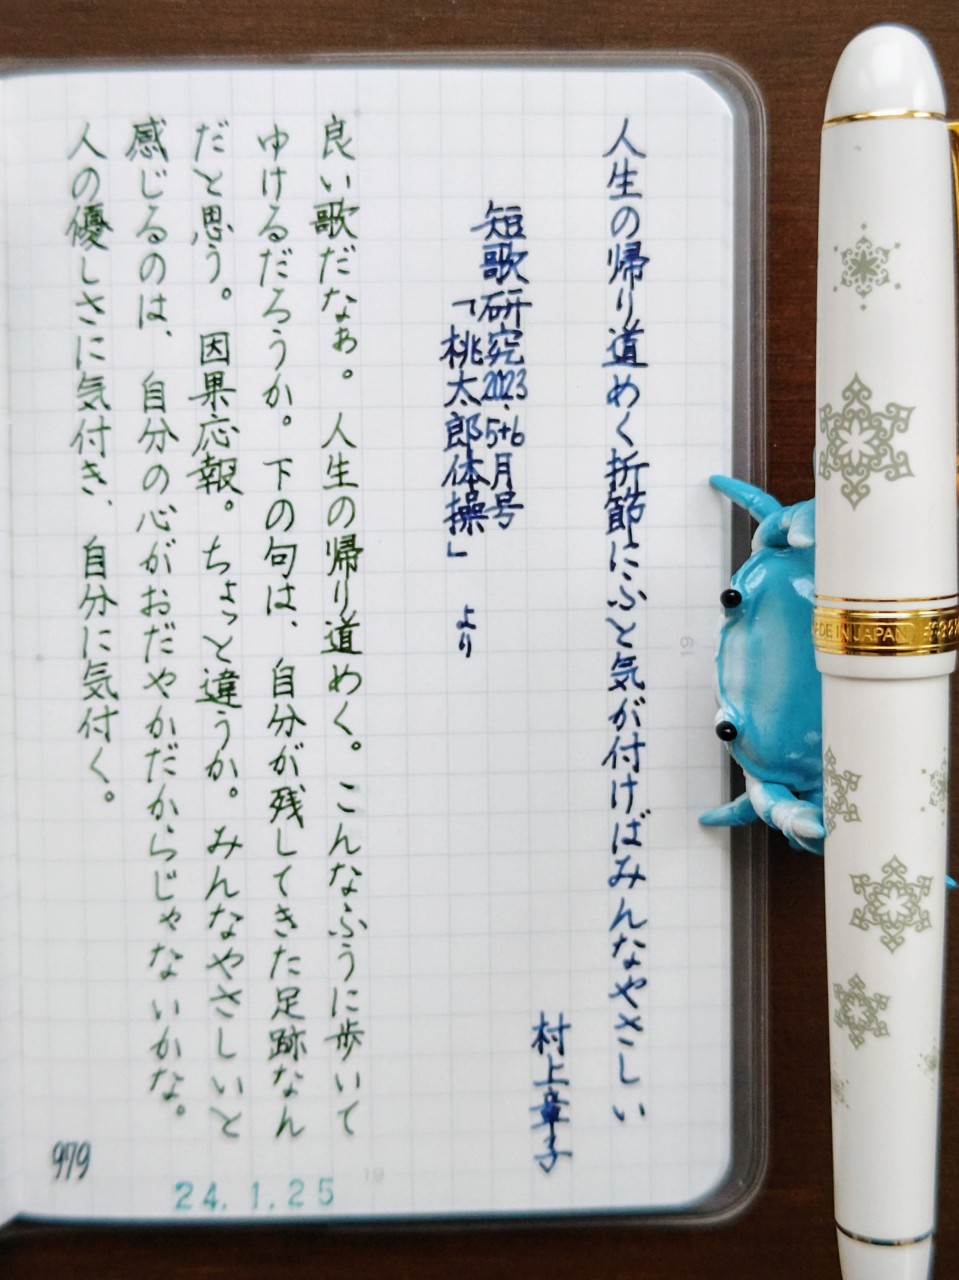 人生の帰り道めく折節にふと気が付けばみんなやさしい
村上章子
短歌研究2023.5+6月号
「桃太郎体操」より
良い歌だなぁ。人生の帰り道めく。こんなふうに歩いて
ゆけるだろうか。下の句は、自分が残してきた足跡なん
だと思う。因果応報。ちょっと違うか。みんなやさしいと
感じるのは、自分の心がおだやかだからじゃないかな。
人の優しさに気付き、自分に気付く。
979
24.1.25
19
19
MADE IN JAPAN